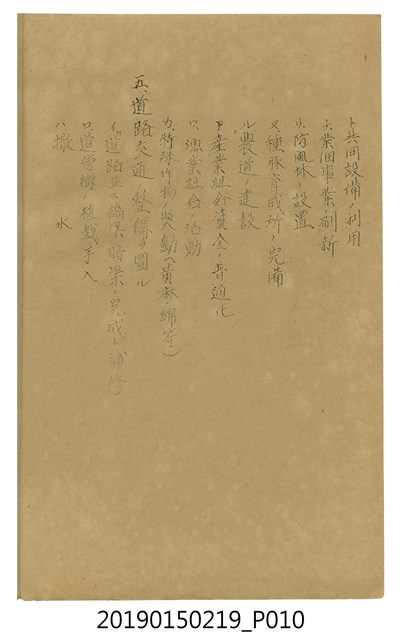 ト、共同設備ノ利用
チ、業佃事業刷新
リ、防風林ノ設置
ヌ、種豚育成所ノ完備
ル、農道ノ建設
ヲ、産業組合資金ノ普通化
ワ、組合ノ活動
カ、特殊作物ノ獎勵(黄麻、綿等)
五、道路交通ノ整備ヲ図ル
イ、道路並ニ橋梁暗渠ノ完成ト補修
ロ、道傍樹ノ植栽手入
ハ、撒水
20190150219_P010